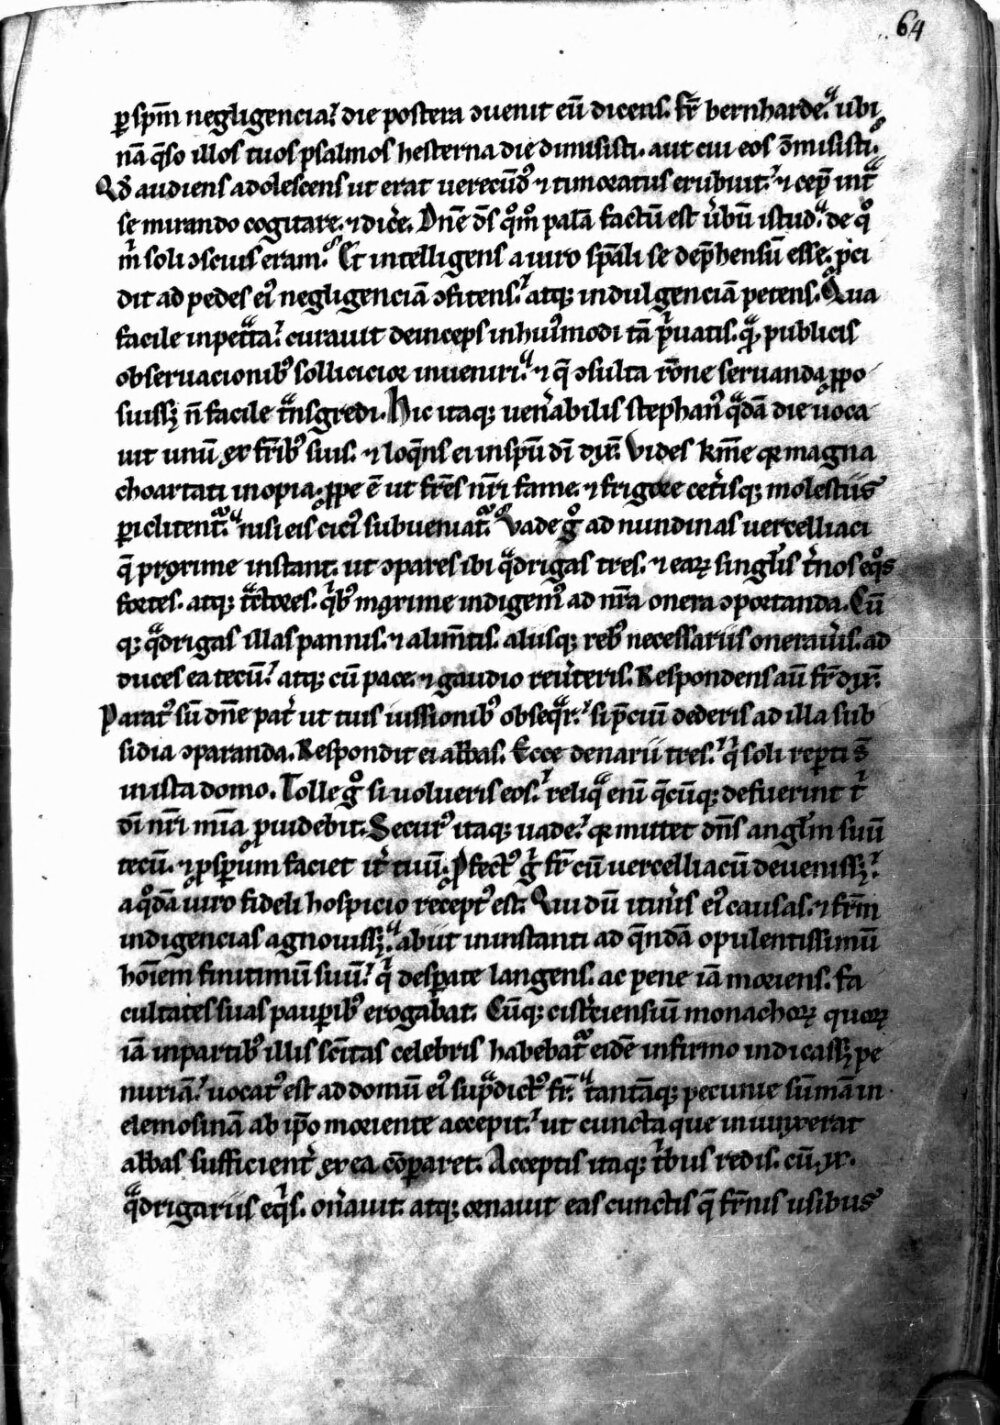 64
ꝑ sp̅m negligencia. die postera ↄuenit eu̅ dicens. fr̅ bernharde. ubi
na̅ q̅so illos tuos psalmos hesterna die dimisisti. aut cui eos ↄ̅misisti.
Qd̅ audiens adolescens ut erat uerecu̅dꝰ ⁊ timoratus erubuit. ⁊ cep̅ int̅
se mirando cogitare. ⁊ dic̅e. Dn̅e d̅s qͦm̅ pala̅ factu̅ est u̅bu̅ istud. de qͦ
m̅ soli ↄscius eram. Et intelligens a uiro sp̅ali se dep̅hensu̅ esse. p̅ci
dit ad pedes eiꝰ negligencia̅ ↄfitens. atqꝫ indulgencia̅ petens. Qua
facile inpet̅ta. curauit deinceps in huiꝰmodi ta̅ p̅uatis. qᷓꝫ publicis
obseruacionibꝰ sollicicior inueniri. ⁊ q̅ ↄsulta ro̅ne seruanda ꝓpo
suissꝫ n̅ facile tᷓnsgredi. Hic itaqꝫ uen̅abilis stephanꝰ qᷓda̅ die uoca
uit unu̅ ex fr̅ibꝰ suis. ⁊ loq̅ns ei in sp̅u di̅ dix̅. Vides km̅e qꝛ magna
choartati inopia. ꝓpe e̅ ut fr̅es nr̅i fame. ⁊ frigore cet̅isqꝫ molestiis
ꝑiclitent᷑. nisi eis ciciꝰ subueniat᷑. Vade gͦ ad nundinas uercelliaci
q̅ proxime instant. ut ↄpares ibi qᷓdrigas tres. ⁊ earꝝ singl̅is t̅nos eqͦs
fortes. atqꝫ tᷓctores. qͥbꝰ maxime indigemꝰ ad nr̅a onera ↄportanda. Cu̅
qꝫ qᷓdrigas illas pannis. ⁊ alim̅tis. aliisqꝫ rebꝰ necessariis oneraui̅s. ad
duces ea tecu̅. atqꝫ cu̅ pace. ⁊ gaudio reu̅teris. Respondens au̅ fr̅ dix̅.
Paratꝰ su̅ dn̅e pat̅ ut tuis iussionibꝰ obseqᷓr. si p̅ciu̅ dederis ad illa sub
sidia ↄparanda. Respondit ei abbas. Ecce denarii tres. qͥ soli reꝑti s̅
in ista domo. Tolle gͦ si uolueris eos. reliqᷓ eni̅ q̅cu̅qꝫ defuerint t̅
di̅ nr̅i mi̅a ꝓuidebit. Securꝰ itaqꝫ uade. qꝛ mittet dn̅s angl̅m suu̅
tecu̅. ⁊ ꝓsꝑum faciet it̅ tuu̅. ꝓfectꝰ gͥ fr̅ cu̅ uercelliacu̅ deuenissꝫ.
a qͦda̅ uiro fideli hospicio receptꝰ est. Qui du̅ itin̅is eiꝰ causas. ⁊ fr̅m
indigencias agnouissꝫ. abiit in instanti ad q̅nda̅ opulentissimu̅
ho̅iem finitimu̅ suu̅. qͥ desꝑate langens. ac pene ia̅ moriens. fa
cultates suas pauꝑibꝰ erogabat. Cu̅qꝫ cist̅ciensiu̅ monachorꝝ quorꝝ
ia̅ in partibꝰ illis sc̅itas celebris habebat᷑ eide̅ infirmo indicassꝫ pe
nuria̅. uocatꝰ est ad domu̅ eiꝰ supᷓdictꝰ fr̅. tanta̅qꝫ pecunie su̅ma̅ in
elemosina̅ ab ip̅o moriente accepit. ut cuncta que iniunxerat
abbas sufficient̅ ex ea co̅pararet. Acceptis itaqꝫ t̅bus redis. cu̅ .ix.
qᷓdrigariis eqͥs. on̅auit. atqꝫ ornauit eas cunctis q̅ fr̅nis usibus